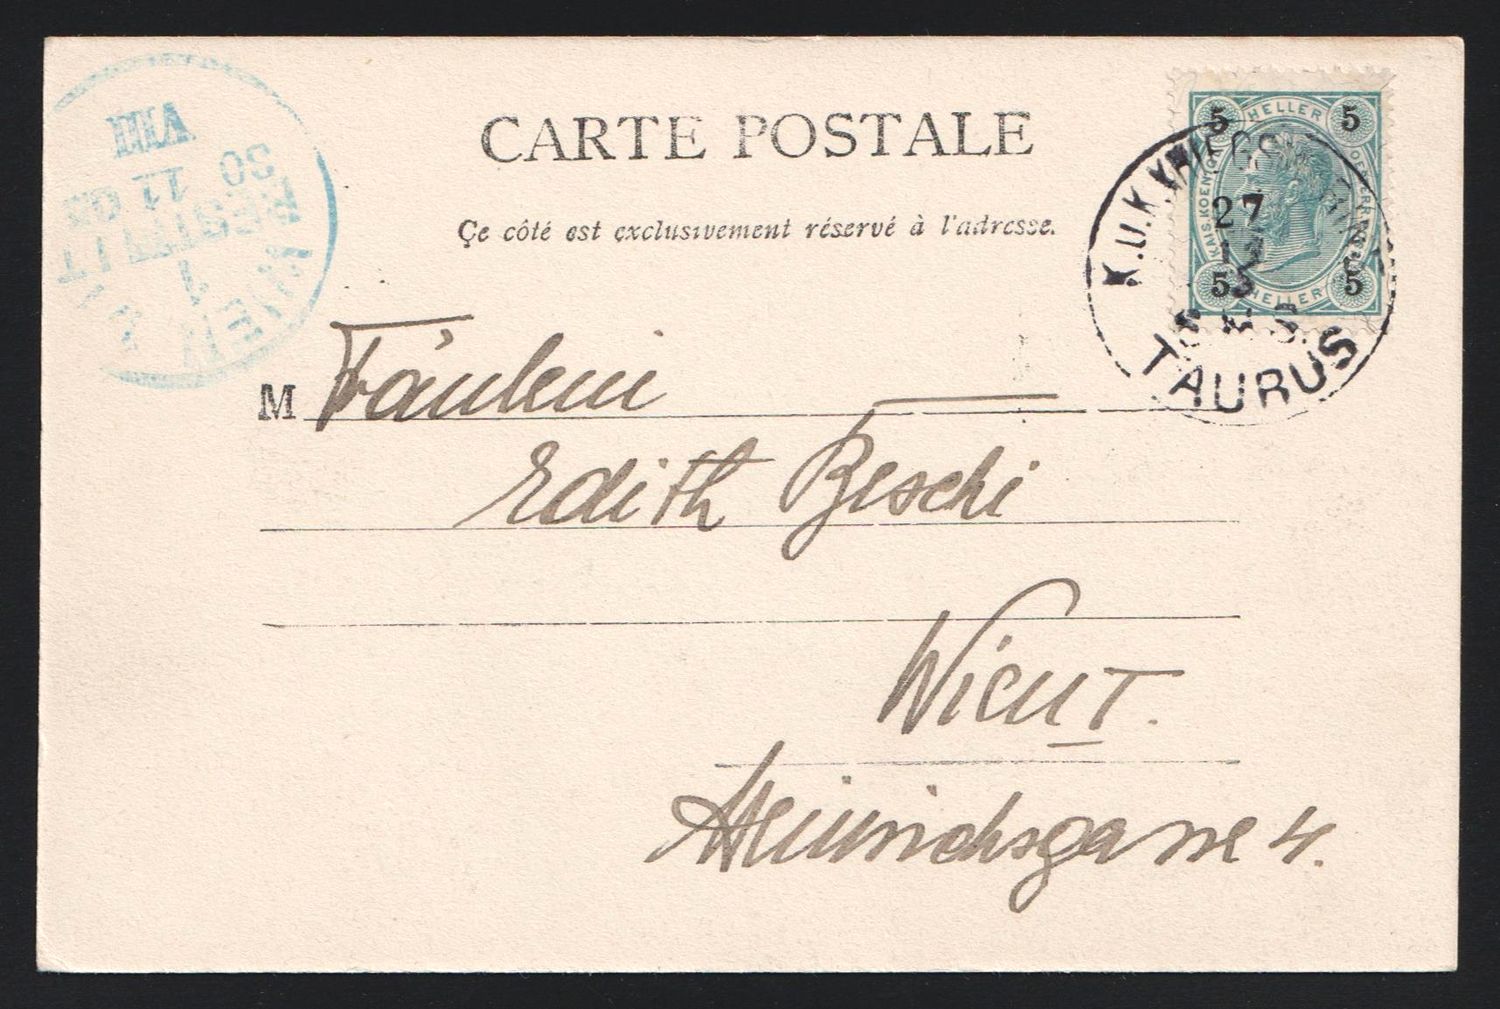 CARTE POSTALE
Ce côté est exclusivement réservé à l'adresse.
5 HELLER 5
KAIS.KOENIGL. OESTERR.
5 HELLER 5
K.U.K.KRIEGS
27
S.M.S.
TAURUS
VIII
30 11 05
BESTELLT
1
WIEN
M Fräulein
Edith Beschi
Wien I.
Heinrichsgasse 4.